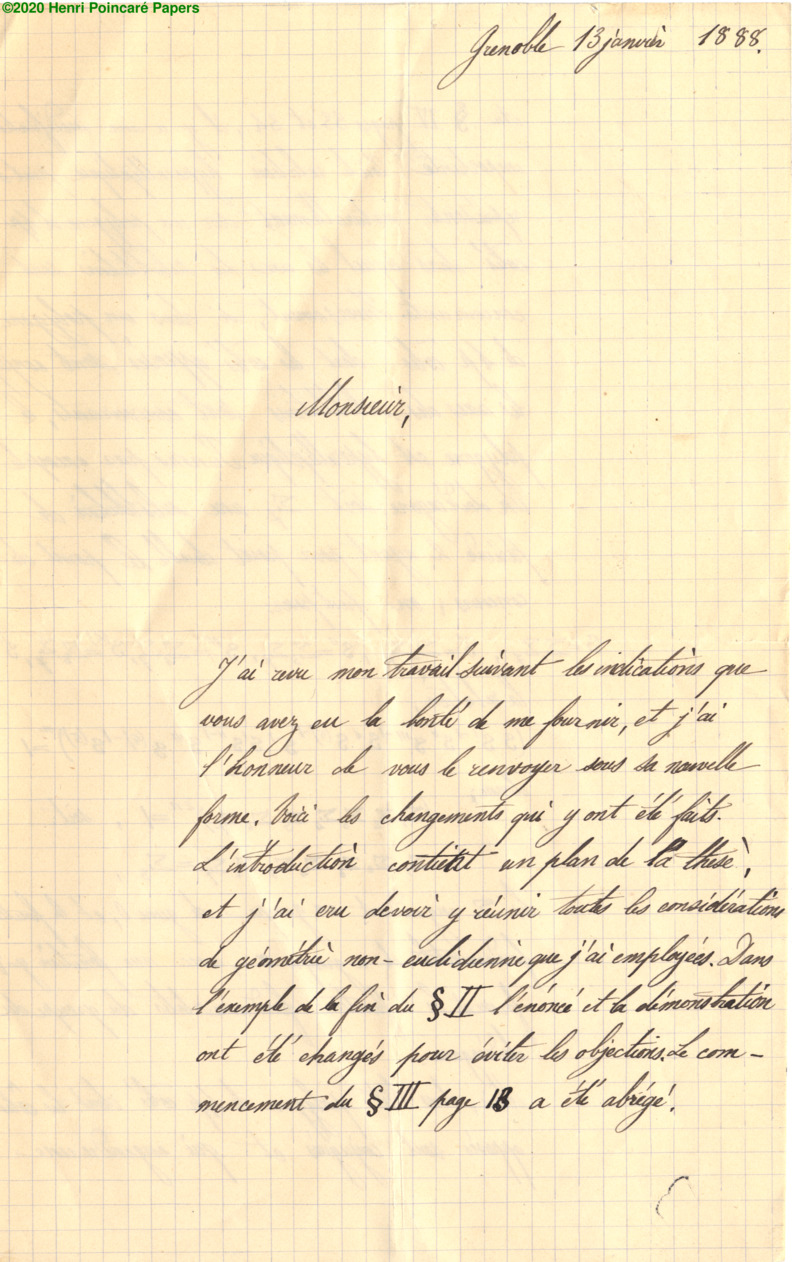 ©2020 Henri Poincaré Papers
Grenoble 13 janvier 1888.
Monsieur,
J'ai revu mon travail suivant les indications que
vous avez eu la bonté de me fournir, et j'ai
l'honneur de vous le renvoyer sous sa nouvelle
forme. Voici les changements qui y ont été faits.
L'introduction contient un plan de la thèse,
et j'ai cru devoir y réunir toutes les considérations
de géométrie non-euclidienne que j'ai employées. Dans
l'exemple de la fin du § II l'énoncé et la démonstration
ont été changés pour éviter les objections. Le com-
mencement du § III page 13 a été abrégé.